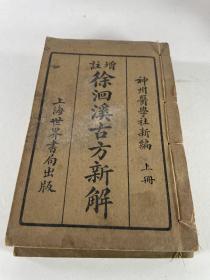 神州醫學社新編 上冊
增註
徐洄溪古方新解
上海世界書局出版